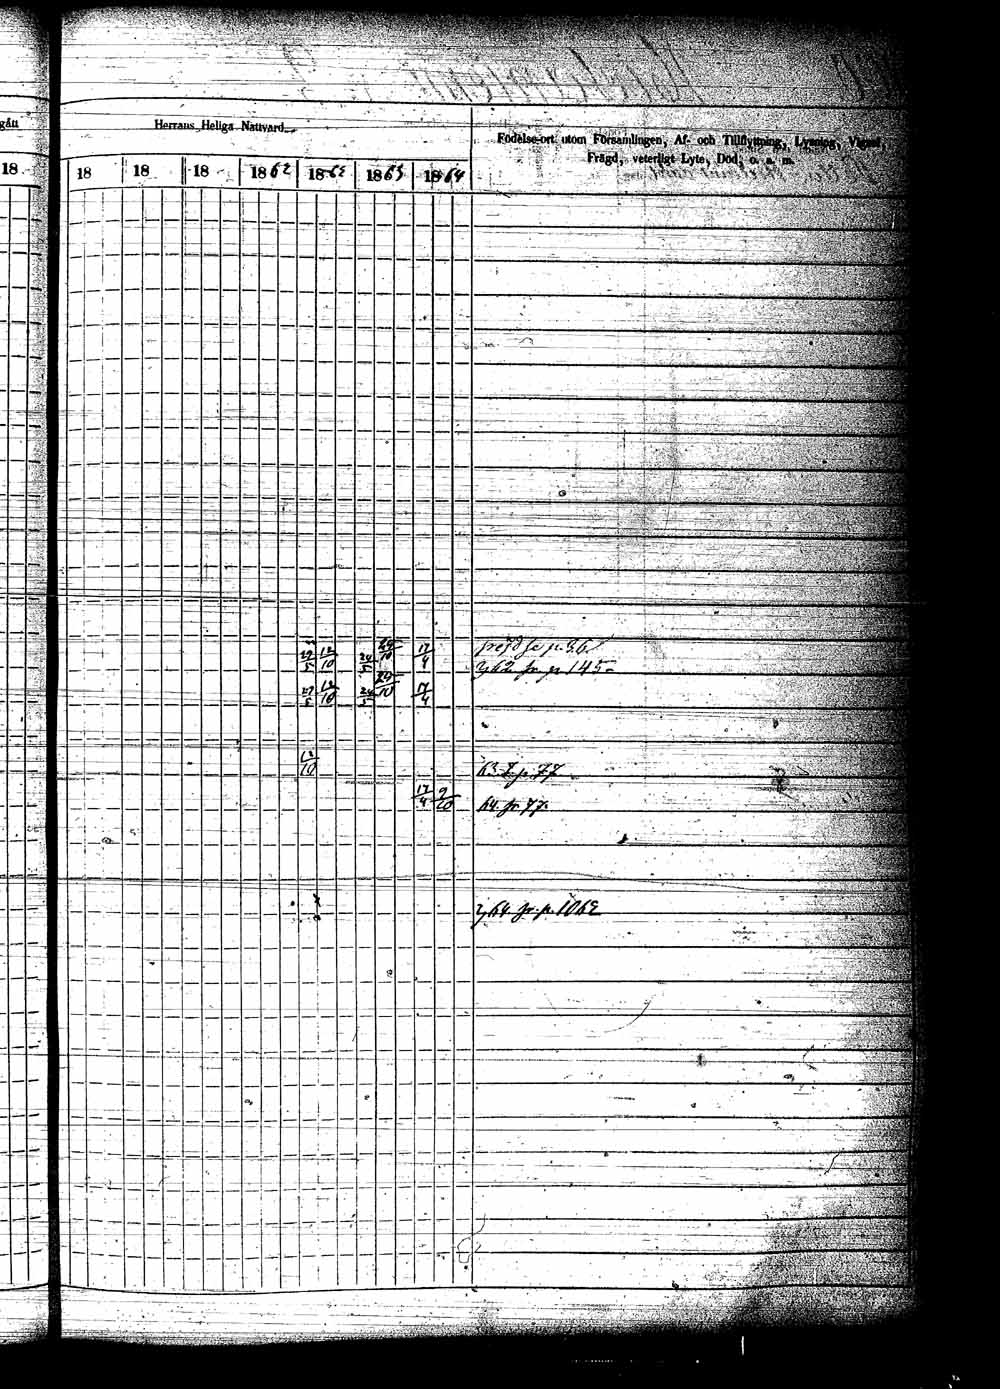 gått
Herrans Heliga Nattvard.
Födelse-ort utom Församlingen, Af- och Tillflyttning, Lysning, Vigsel,
Frägd, veterligt Lyte, Död, o. s. m.
18 18 18 18 1862 18 1863 1864
27/5 12/10 24/5 24/10 17/4
p. 145
27/5 12/10 24/5 24/10 17/4
12/10 63 p. 77
17/4 9/10 64 fr. 77
64 fr. p. 1062